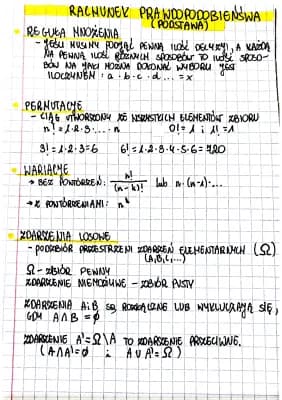 RACHUNEK PRAWDOPODOBIEŃSTWA
(PODSTAWA)
• REGUŁA MNOŻENIA
- JEŚLI MUSIMY PODJĄĆ PEWNĄ ILOŚĆ DECYZJI, A KAŻDĄ
NA PEWNĄ ILOŚĆ RÓŻNYCH SPOSOBÓW TO ILOŚĆ SPOSO-
BÓW NA JAKI MOŻNA DOKONAĆ WYBORU JEST
ILOCZYNEM: a · b · c · d ... = x
• PERMUTACJE
- CIĄG UTWORZONY ZE WSZYSTKICH ELEMENTÓW ZBIORU
n! = 1·2·3·...·n 0! = 1 i 1! = 1
3! = 1·2·3=6 6! = 1·2·3·4·5·6=720
• WARIACJE
→ BEZ POWTÓRZEŃ: n!/(n-k)! lub n·(n-1)·...
→ Z POWTÓRZENIAMI: n^k
• ZDARZENIA LOSOWE
- PODZBIÓR PRZESTRZENI ZDARZEŃ ELEMENTARNYCH (Ω)
(A,B,C,...)
Ω - ZBIÓR PEWNY
ZDARZENIE NIEMOŻLIWE - ZBIÓR PUSTY
ZDARZENIA A i B SĄ ROZŁĄCZNE LUB WYKLUCZAJĄ SIĘ,
GDY A ∩ B = ∅
ZDARZENIE A' = Ω \ A TO ZDARZENIE PRZECIWNE.
(A ∩ A' = ∅ i A ∪ A' = Ω)